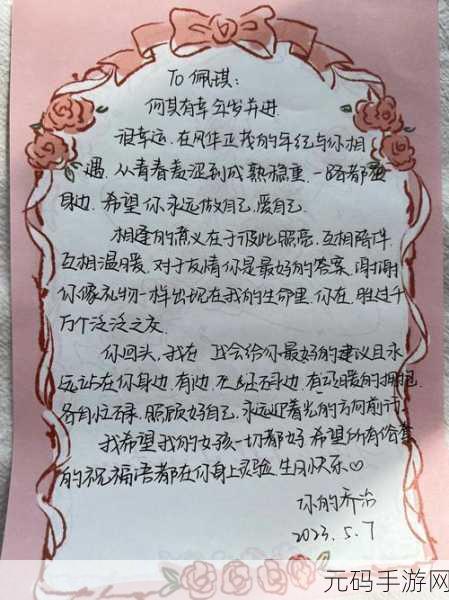 To 佩琪:
何其有幸 年岁并进
很幸运,在风华正茂的年纪与你相
遇,从青春羞涩到成熟稳重,一路都在
身边,希望你永远做自己,爱自己.
相逢的意义在于彼此照亮,互相陪伴
互相温暖,对于友情你是最好的答案,谢谢
你像礼物一样出现在我的生命里,你在,胜过千
万个泛泛之友.
你回头,我在 我会给你最好的建议且永
远站在你身边,有边,有温暖的拥抱.
各自忙碌,照顾好自己,永远迎着光的方向前行
我希望我的女孩一切都好 希望所有收集
的祝福语都在你身上灵验 生日快乐♡
你的乔治
2023.5.7
元码手游网